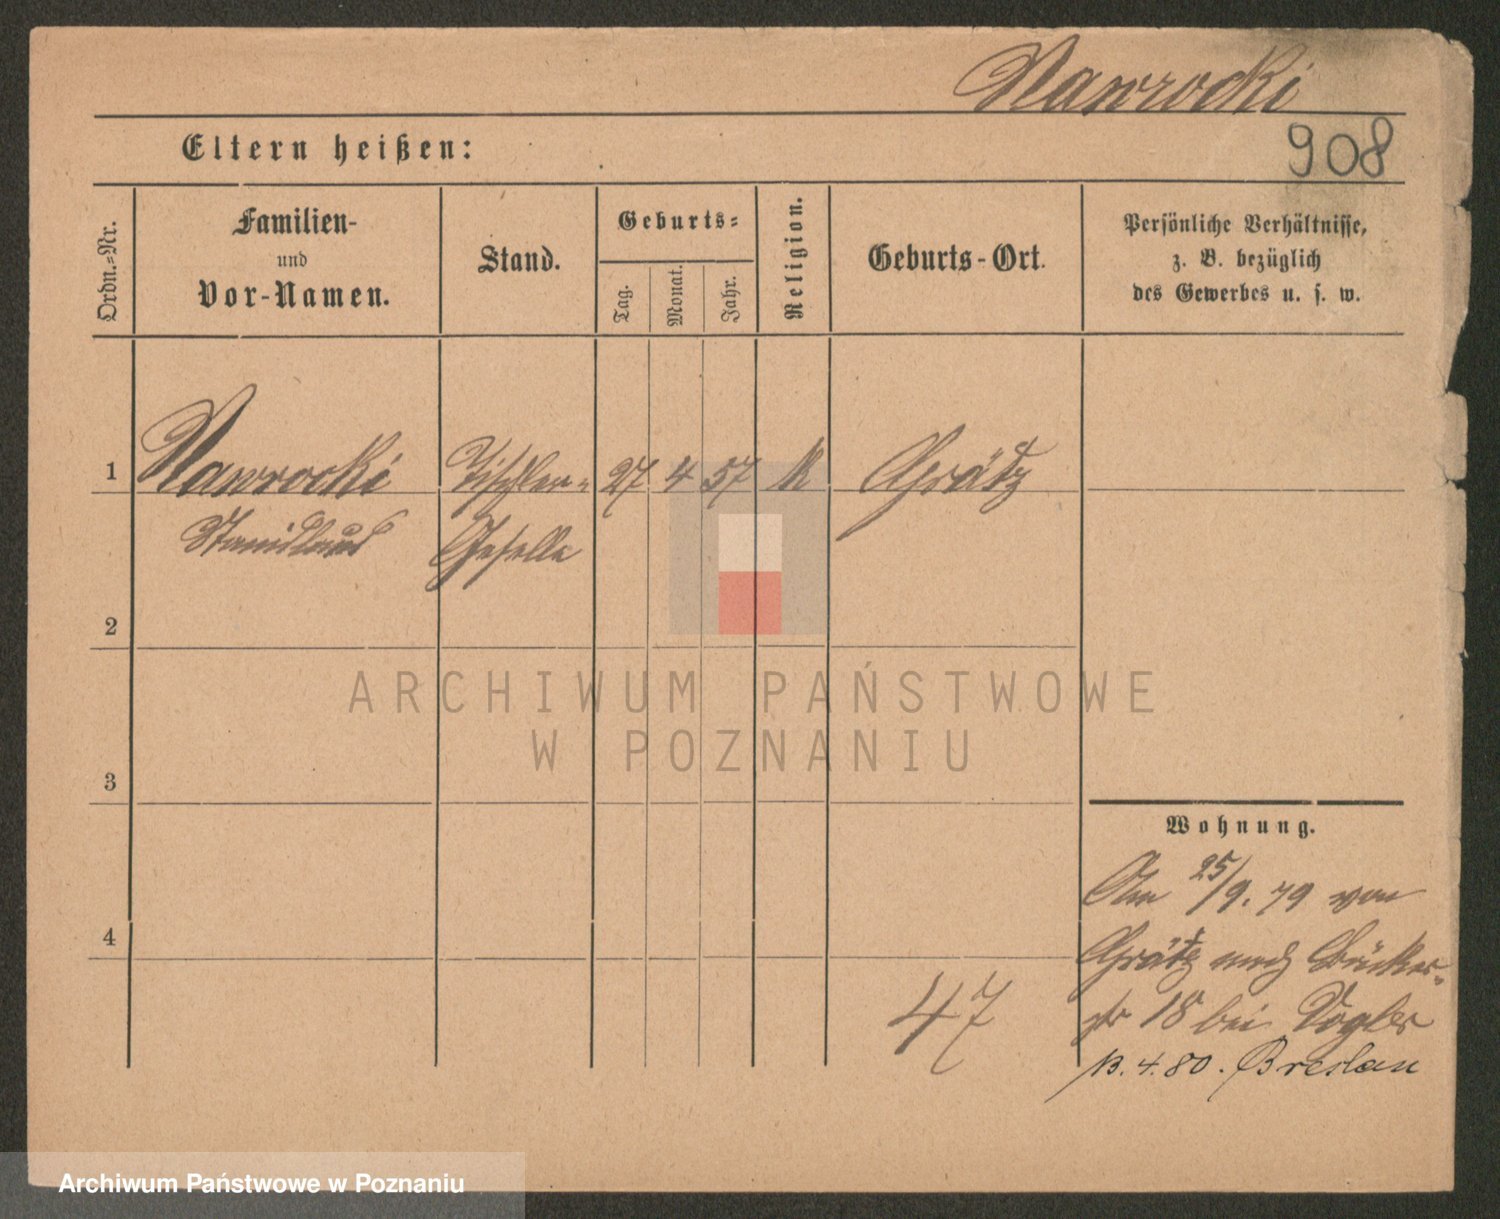 Nawrocki
Eltern heißen:
908
Ordn.-Nr.
Familien-
und
Vor-Namen.
Stand.
Geburts-
Tag.
Monat.
Jahr.
Religion.
Geburts-Ort.
Persönliche Verhältnisse,
z. B. bezüglich
des Gewerbes u. s. w.
1 Nawrocki Tischler- 27 4 57 k Grätz
Stanislaus Geselle
2
ARCHIWUM PAŃSTWOWE
W POZNANIU
3
Wohnung.
Am 25/9. 79 von
4
Grätz nach Bäcker-
str 18 bei Vogler
47
13. 4. 80. Breslau
Archiwum Państwowe w Poznaniu